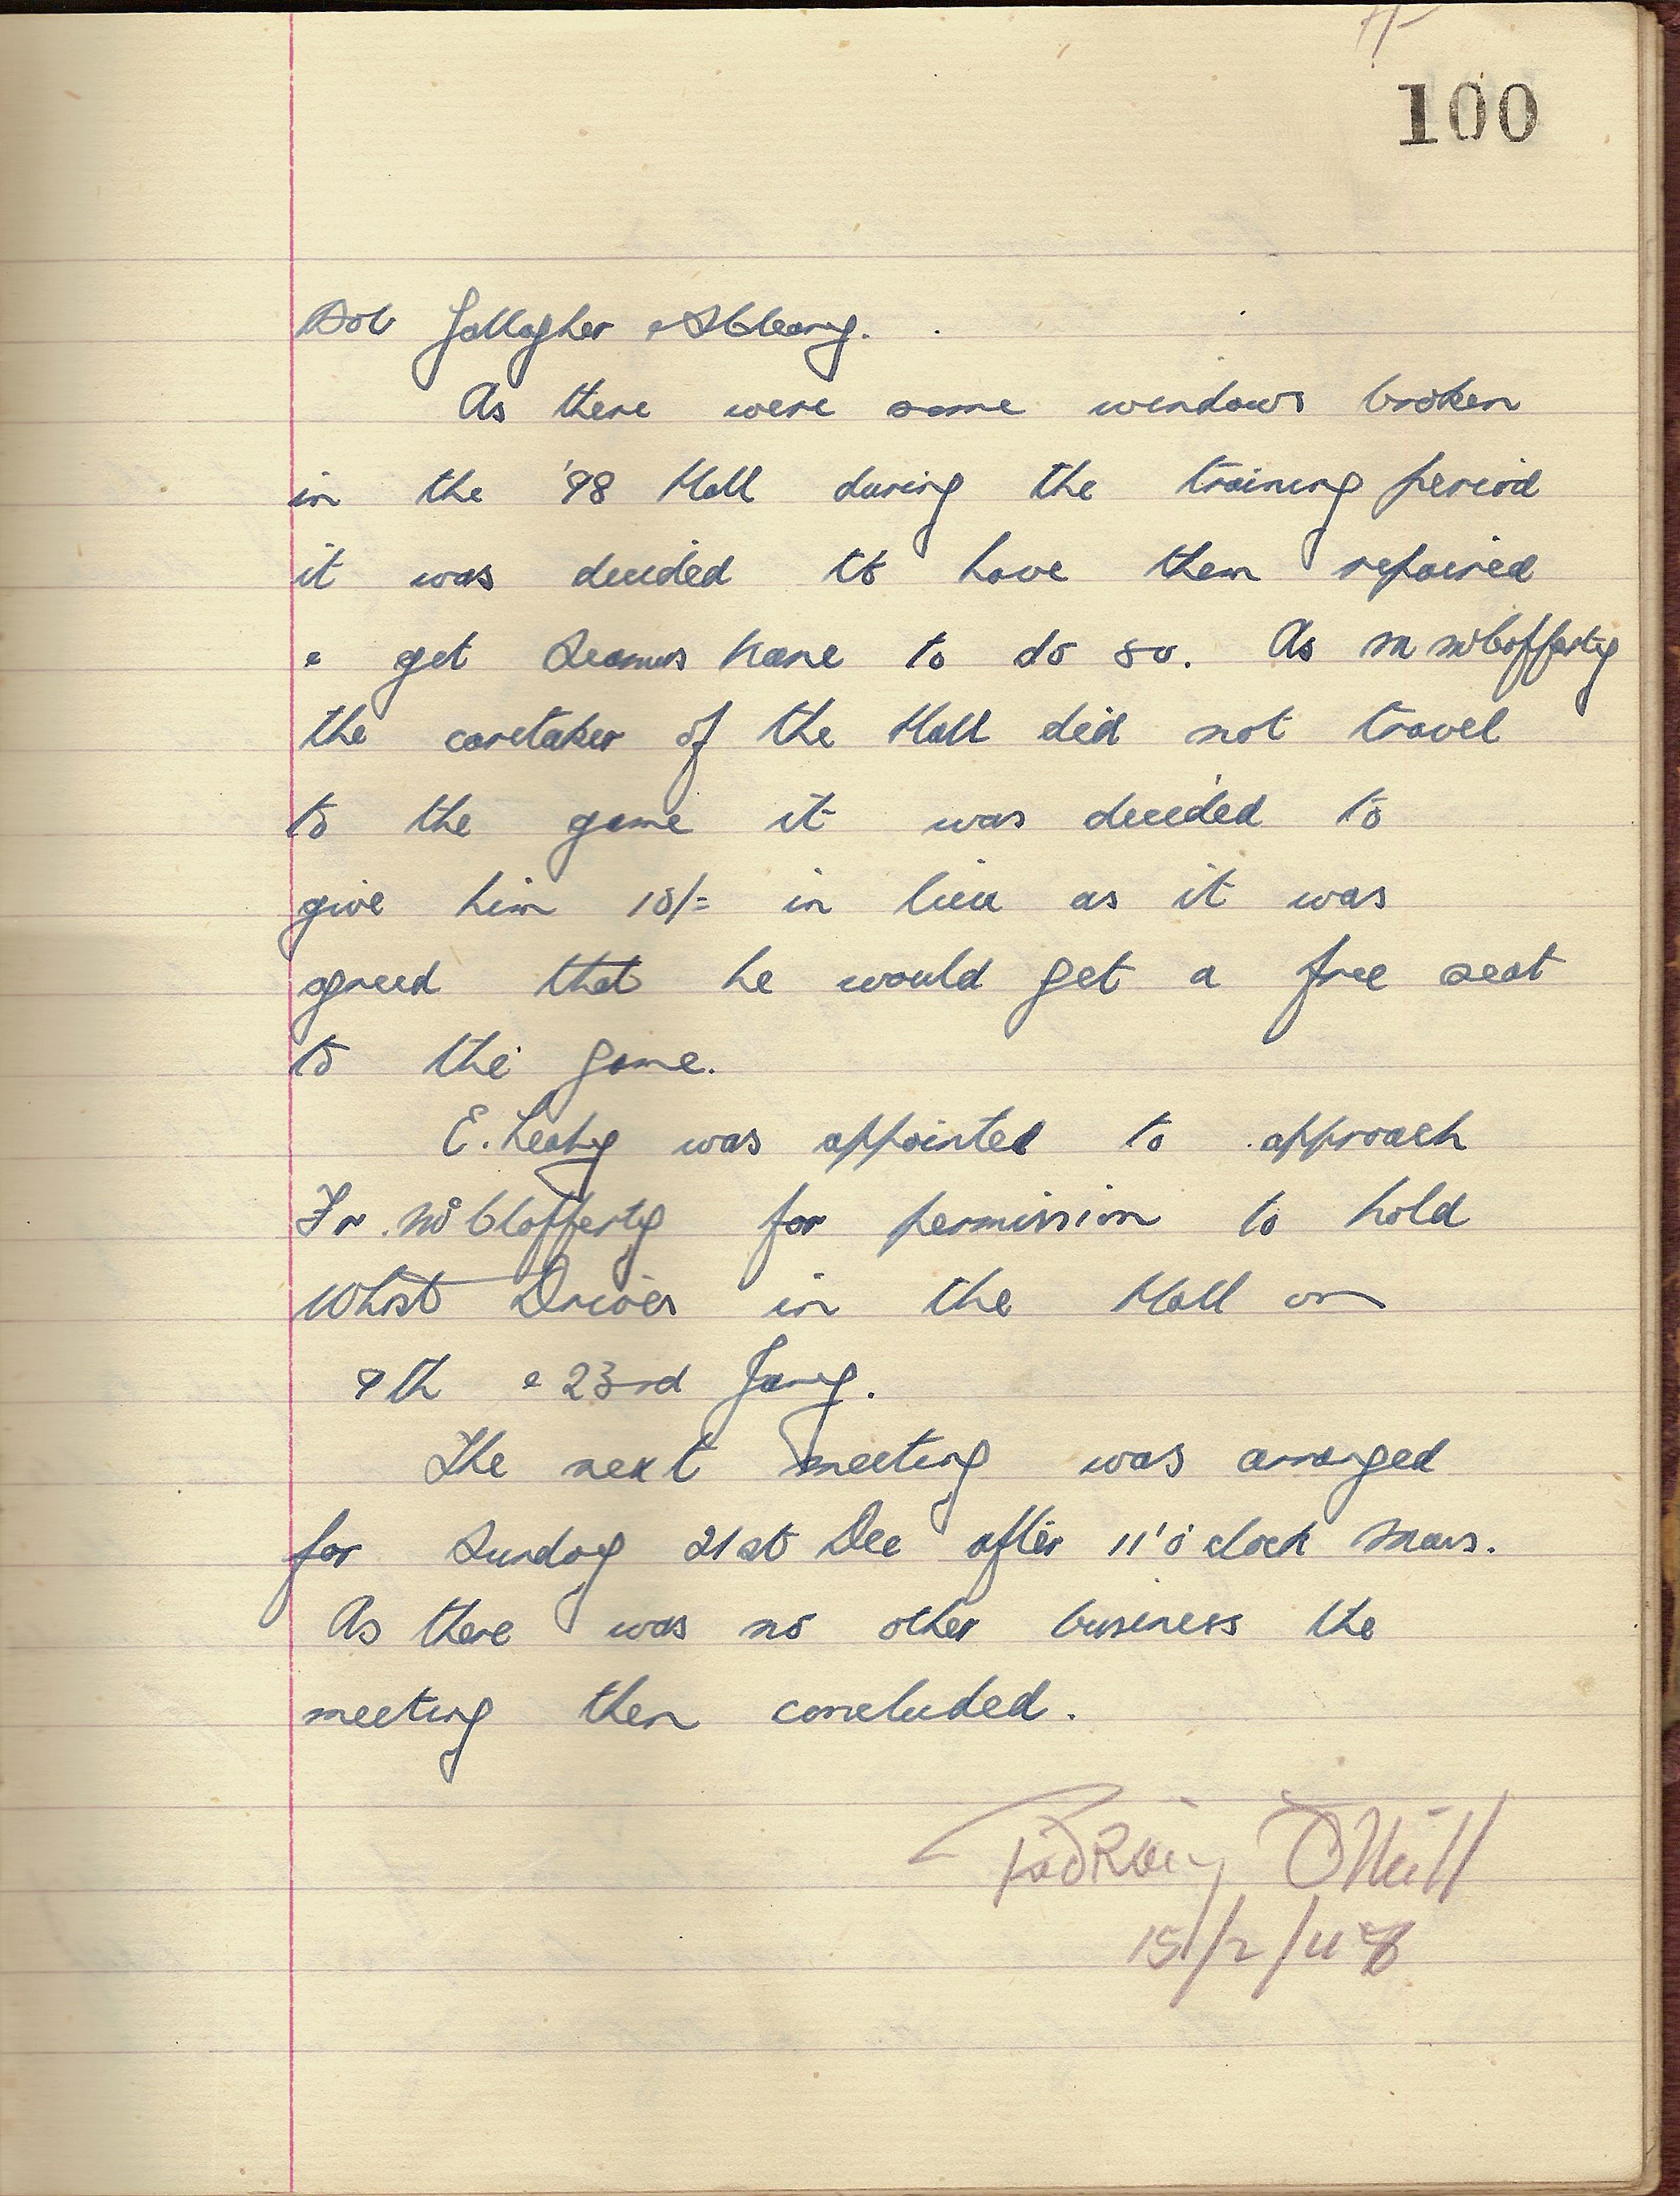 100
Bob Gallagher & S Cleary.
As there were some windows broken
in the '98 Hall during the training period
it was decided to have them repaired
& get Seamus Kane to do so. As M McCafferty
the caretaker of the Hall did not travel
to the game it was decided to
give him 10/= in lieu as it was
agreed that he would get a free seat
to the game.
E. Leahy was appointed to approach
Fr. McClafferty for permission to hold
Whist Drives in the Hall on
9th & 23rd Jany.
The next meeting was arranged
for Sunday 21st Dec after 11 o'clock Mass.
As there was no other business the
meeting then concluded.
Pádraig Ó Neill
15/2/48